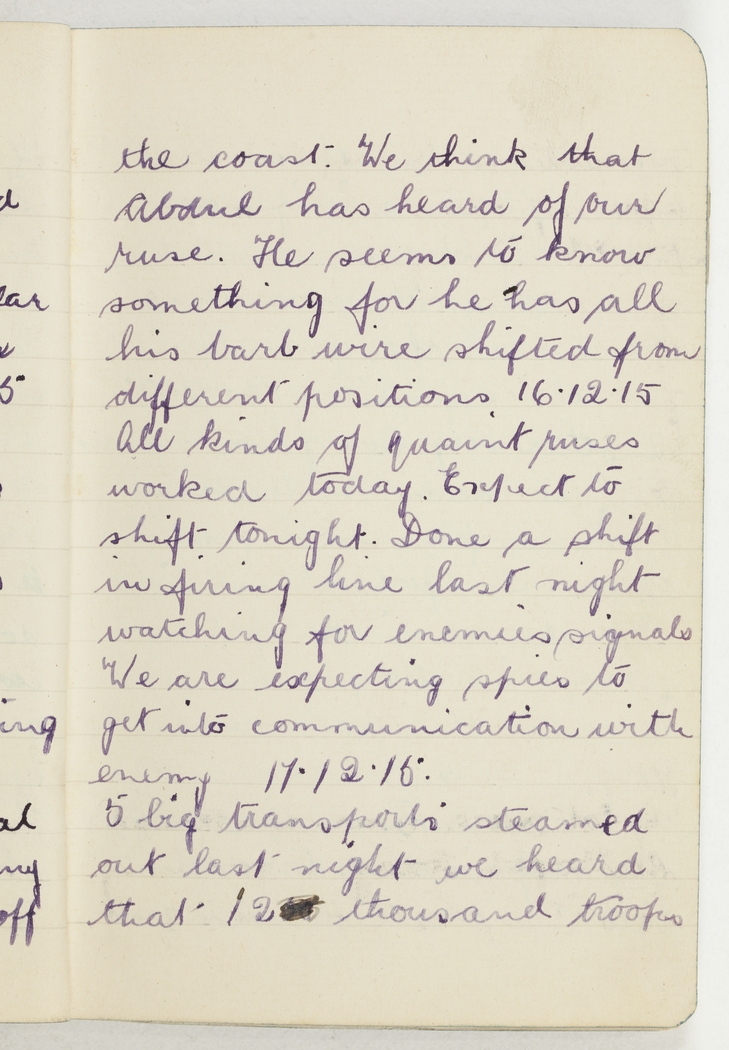 the coast. We think that
Abdul has heard of our
ruse. He seems to know
something for he has all
his barb wire shifted from
different positions 16.12.15
All kinds of quaint ruses
worked today. Expect to
shift tonight. Done a shift
in firing line last night
watching for enemies signals
We are expecting spies to
get into communication with
enemy 17.12.15.
5 big transports steamed
out last night we heard
that 12 thousand troops
d
lar
5
ing
al
ny
off